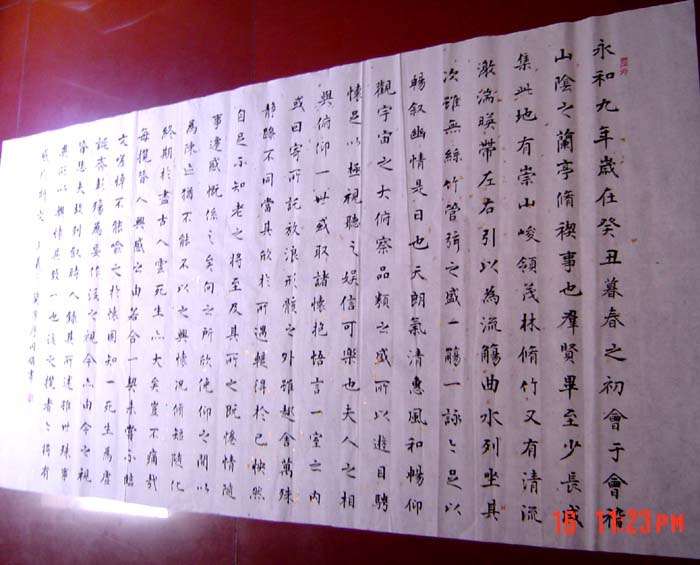 永和九年歲在癸丑暮春之初會于會稽
山陰之蘭亭脩禊事也羣賢畢至少長咸
集此地有崇山峻領茂林脩竹又有清流
激湍暎帶左右引以為流觴曲水列坐其
次雖無絲竹管弦之盛一觴一詠亦足以
暢叙幽情是日也天朗氣清惠風和暢仰
觀宇宙之大俯察品類之盛所以遊目騁
懷足以極視聽之娛信可樂也夫人之相
與俯仰一世或取諸懷抱悟言一室之內
或因寄所託放浪形骸之外雖趣舍萬殊
静躁不同當其欣於所遇暫得於己怏然
自足不知老之將至及其所之既惓情隨
事遷感慨係之矣向之所欣俛仰之間以
為陳迹猶不能不以之興懷況脩短隨化
終期於盡古人云死生亦大矣豈不痛哉
每攬昔人興感之由若合一契未嘗不臨
文嗟悼不能喻之於懷固知一死生為虛
誕齊彭殤為妄作後之視今亦由今之視
昔悲夫故列叙時人錄其所述雖世殊事
異所以興懷其致一也後之攬者亦將有
感於斯文 蘭亭序 書
16 11:23PM